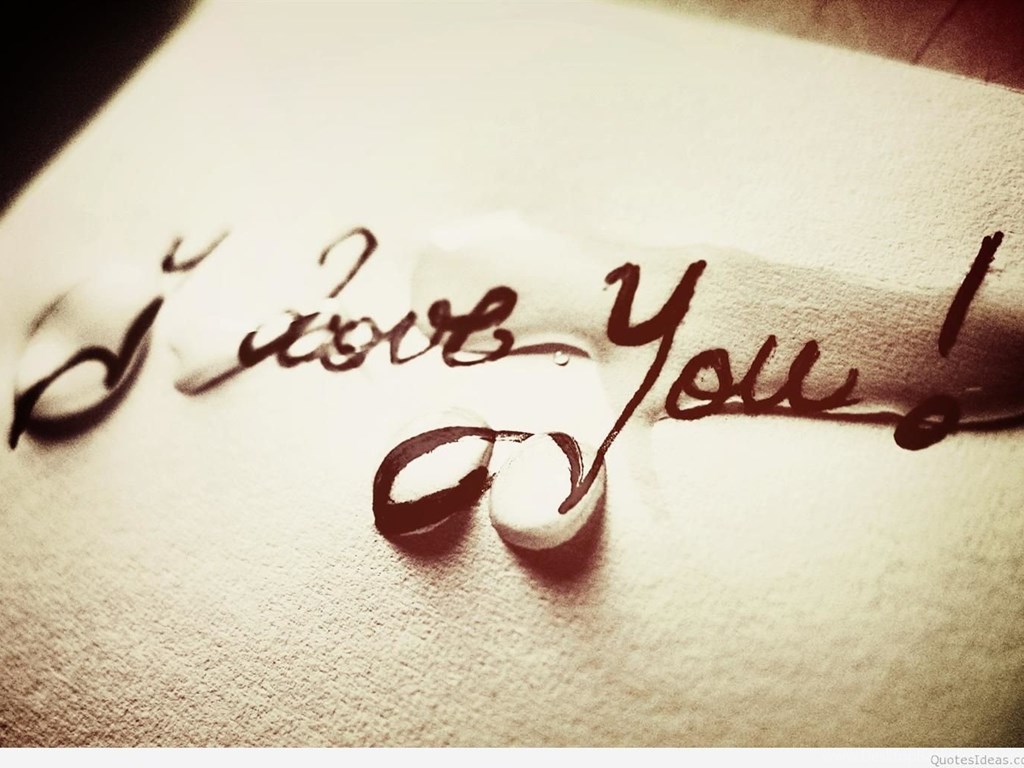 I love You!
QuotesIdeas.co